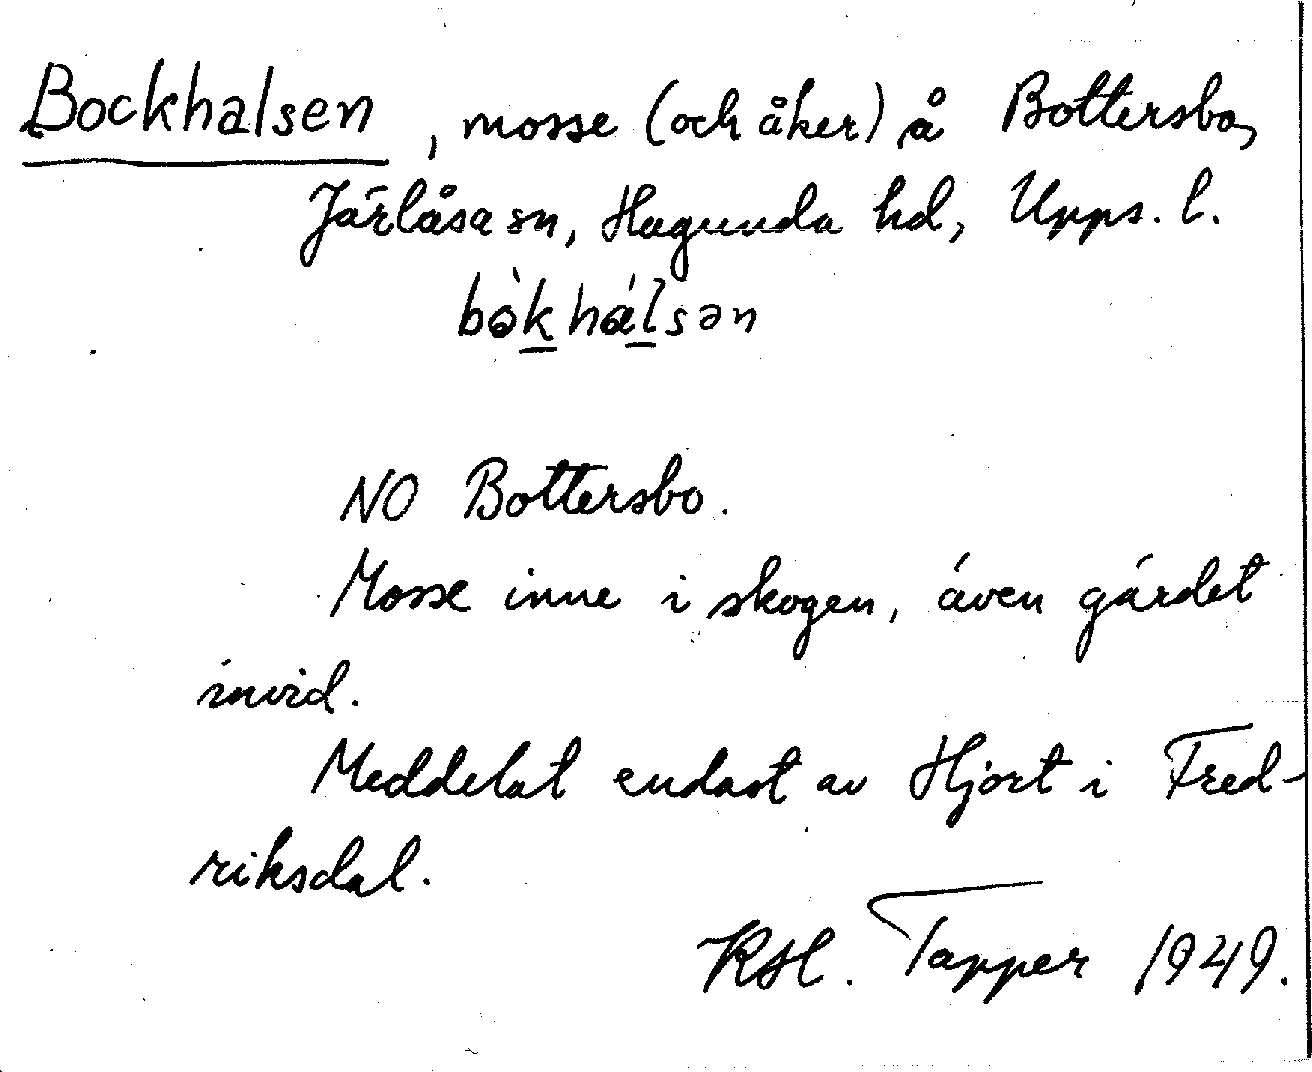 Bockhalsen, mosse (och åker) å Bottersbo,
Järlåsa sn, Hagunda hd, Upps. l.
bòkhálsən
NO Bottersbo.
Mosse inne i skogen, även gärdet
invid.
Meddelat endast av Hjort i Fred-
riksdal.
KH. Tapper 1949.